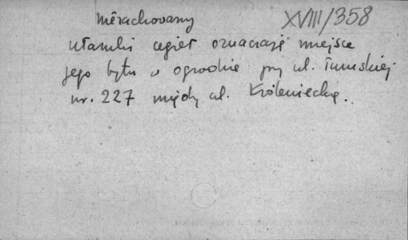 niezachowany XVIII/358
ułamki cegieł oznaczają miejsce
jego bytu w ogrodzie przy ul. Tumskiej
nr. 227 między ul. Królewiecką.